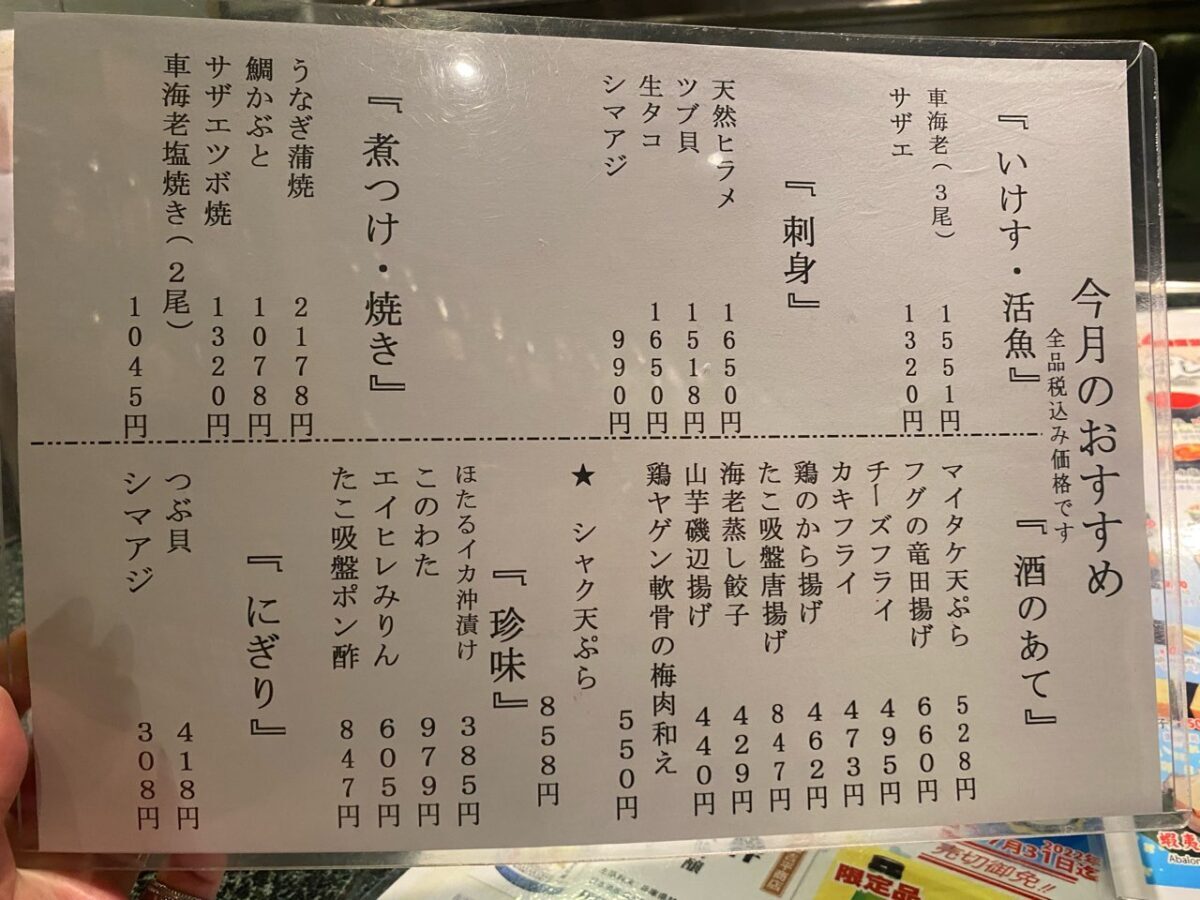 今月のおすすめ
全品税込み価格です
『いけす・活魚』
車海老(3尾) 1551円
サザエ 1320円
『刺身』
天然ヒラメ 1650円
ツブ貝 1518円
生タコ 1650円
シマアジ 990円
『煮つけ・焼き』
うなぎ蒲焼 2178円
鯛かぶと 1078円
サザエツボ焼 1320円
車海老塩焼き(2尾) 1045円
『酒のあて』
マイタケ天ぷら 528円
フグの竜田揚げ 660円
チーズフライ 495円
カキフライ 473円
鶏のから揚げ 462円
たこ吸盤唐揚げ 847円
海老蒸し餃子 429円
山芋磯辺揚げ 440円
鶏ヤゲン軟骨の梅肉和え 550円
★ シャク天ぷら 858円
『珍味』
ほたるイカ沖漬け 385円
このわた 979円
エイヒレみりん 605円
たこ吸盤ポン酢 847円
『にぎり』
つぶ貝 418円
シマアジ 308円
限定品
2022年
7月31日迄
売切御免!!